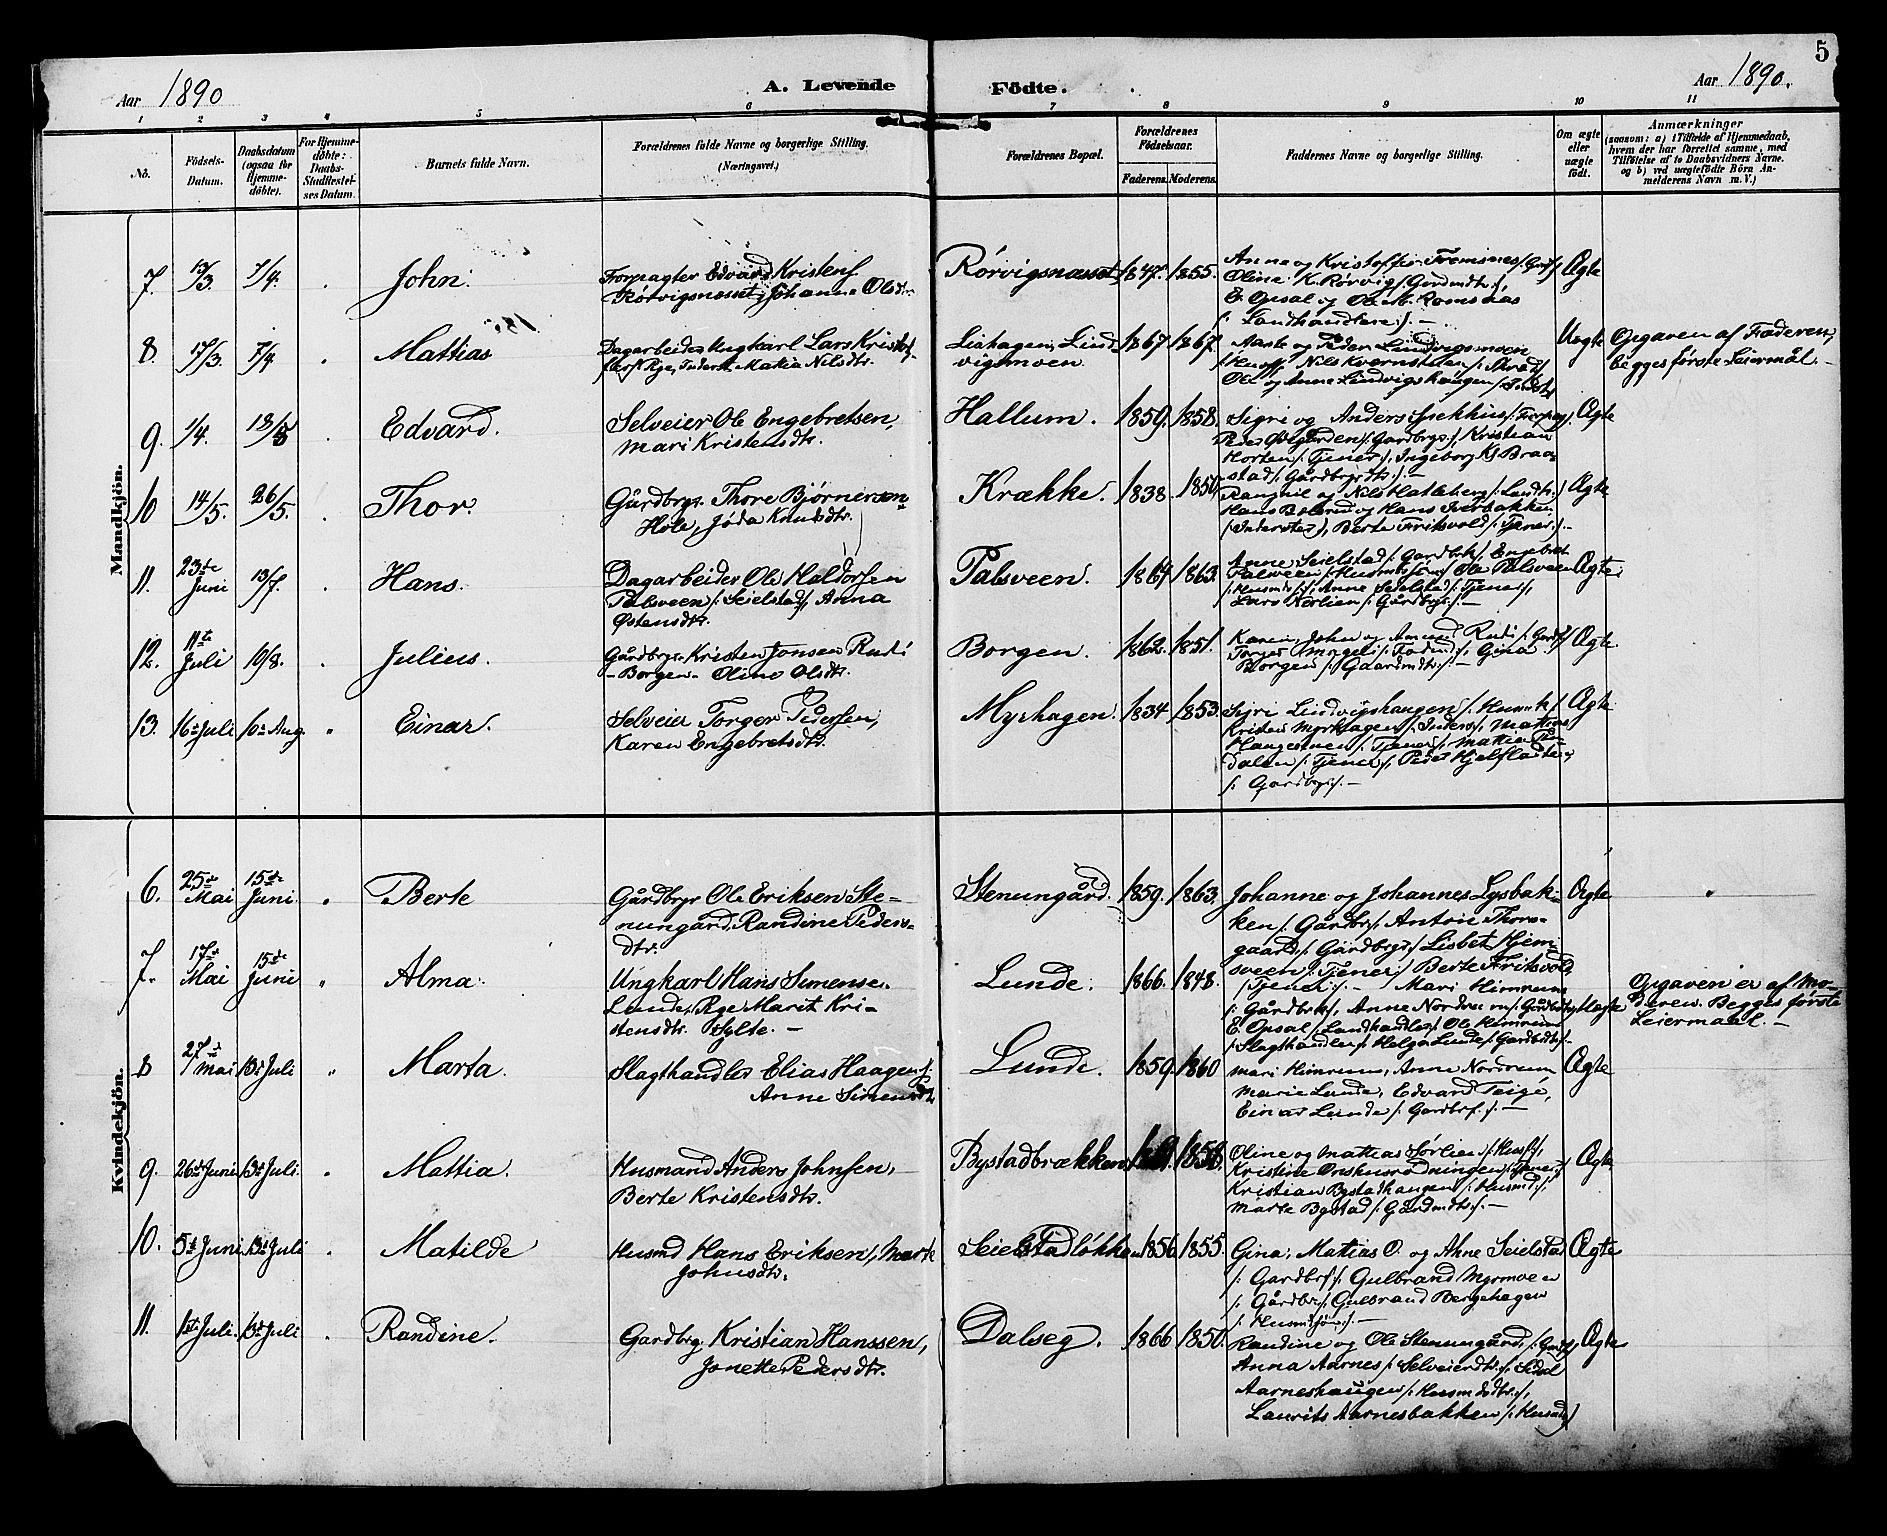 Aar 1890
A. Levende Födte.
Aar 1890.
5
1 2 3 4 5 6 7 8 9 10 11
No.
Födsels-
Datum.
Daabsdatum
(ogsaa for
Hjemme-
døbte).
For Hjemme-
døbte:
Daabs-
Stadfæstel-
ses Datum.
Barnets fulde Navn.
Forældrenes fulde Navne og borgerlige Stilling.
(Næringsvei.)
Forældrenes Bopæl.
Forældrenes
Födselsaar.
Faderens. Moderens.
Faddernes Navne og borgerlige Stilling.
Om ægte
eller
uægte
födt.
Anmærkninger
(saasom: a) i Tilfælde af Hjemmedaab,
hvem der har forrettet samme, med
Tilföielse af to Daabsvidners Navne.
og b) ved uægtefödte Börn An-
melderens Navn m. V.)
Mandkjön.
7. 13/3. 7/4. John.
Forpagter Edvard Kristens.
Rörvigsnæsset, Johanne Olsdtr.
Rörvigsnæsset, 1847. 1855.
Anne og Kristoffer Tromsnes /: Gardf.
Oline K. Rörvig /: Gardmdtr:/
E. Opsal og Ole M. Romsaas
/: Landhandlere :/. —
Ægte
8. 17/3. 7/4. Mattias
Dagarbeider Ungkarl Lars Kristof-
Pige, Inderst. Matea Nilsdtr.
Liahagen, Lind-
vigsmoen. 1867. 1867.
Aaste og Peder Lindvigsmoen
/: Husf:/ Nils Kværnstuen /: Skræd
Ole og Anne Lindvigshaugen /: Inderst
Uægte
Opgaven af Faderen,
begges förste Leiermål. —
9. 1/4. 18/5. Edvard.
Selveier Ole Engebretsen,
Mari Kristensdtr.
Hallum. 1859. 1858.
Sigri og Anders /: Forpag.
/: Gardbrgr:/, Kristian
Horten /: Tjener:/, Ingeborg K. Braa-
stad /: Gårdbrgrdtr:/ —
Ægte
10. 14/5. 26/5. Thor.
Gårdbrgr. Thore Bjørnersen
Hole, Jøda Knudsdtr.
Krække. 1838. 1850.
Rangnil og Nils Hatleberg /: Landh:/
Hans Boland og Hans Iverbakken
/: Inderster:/, Berte Fritsvold /: Tjener:/. —
Ægte
11. 23de
Juni 13/7. Hans.
Dagarbeider Ole Haldorsen
Palsveen /: Seielstad:/, Anna
Østensdtr.
Palsveen. 1864. 1863.
Anne Seielstad /: Gardbrk:/, Engebret
Palsveen /: Ole Palsveen
/: Husmd:/, Anne Seielstad /: Tjener:/,
Lars Nörlien /: Gårdbrgr:/. —
Ægte
12. 11te
Juli 10/8. Julius.
Gårdbrgr. Kristen Jonsen Rudi
- Borgen - Oline Olsdtr.
Borgen. 1862. 1851.
Karen, John og Amund Rudi /: Gardf
Torger Gina
Borgen /: Gaardmdtr:/. —
Ægte
13. 16de Juli 10de Aug. Einar.
Selveier Torger Pedersen,
Karen Engebretsdtr.
Myrhagen. 1834 1853.
Sigri Lindvigshaugen /: Husmk
Kristen Myrhagen /: Inders:/, Matea
Haugestuen /: Tjener:/, Matea
dalen /: Tjener:/, Peder Hjelfladt
/: Gardbrgr:/. —
Ægte
Kvindekjön.
6. 25de
Mai 15de
Juni " Berte
Gårdbrgr Ole Eriksen Ste-
nungård, Randine Peders-
dtr.
Stenungård. 1859. 1863.
Johanne og Johannes Lysbak-
ken /: Gårdbr:/, Antoie Thors-
gaard, /: Gårdbrgr:/, Lisbet Hjem-
sveen /: Tjener:/ Berte Fritsvold
/: Tjener:/. —
Ægte
7. 17de
Mai 15de
Juni " Alma.
Ungkarl Hans Simensen
Lunde, Pige Marit Kri-
stensdtr. Hylte. —
Lunde. 1866. 1848.
Mari Himrum
/: Gårdbrk:/, Anne Nordrum /: Gårdbr
E. Opsal, /: Landhandler:/ Ole Himrum
/: Slagthandler:/, Helga Lunde /: Gardbdtr:/. —
Uægte
Opgaven er af Mo-
deren. Begges förste
Leiermaal. —
8 27de
Mai 13de Juli " Marta.
Slagthandler Elias Haagens.
Anne Simensdtr.
Lunde. 1859. 1860
Mari Himrum, Anne Nordrum
Marie Lunde, Edvard Teige,
Einar Lunde /: Gardbrf. :/. —
Ægte
9. 26de Juni 13de Juli. " Mattia.
Husmand Anders Johnsen,
Berte Kristensdtr.
Bystadbrækken. 1856.
Oline og Mattias Sörlien /: Husf:/,
Kristine /: Tjener:/
Kristian Bystadhaugen /: Husmd:/,
Marte Bystad /: Gårdmdtr:/. —
Ægte
10. 5te Juni 13de Juli " Matilde
Husmd Hans Eriksen, Marte
Johnsdtr.
Seielstadløkken 1856 1855.
Gina, Mattias O. og Ahne Seielstad
/: Gardbrf:/. Gulbrand Myrmoen
/: Gårdbr:/, Gulbrand Bergehagen
Ægte
11. 1ste Juli. 13de Juli " Randine.
Gardbrg. Kristian Hanssen,
Jonette Pedersdtr.
Dalseg. 1866 1850.
Randine og Ole Stenungård, /: Gardf
Anna Aarnes /: Selveierdtr:/, Sidsl
Aarneshaugen /: Husmdsdtr:/,
Laurits Aarnesbakken /: Husmd:/
Ægte